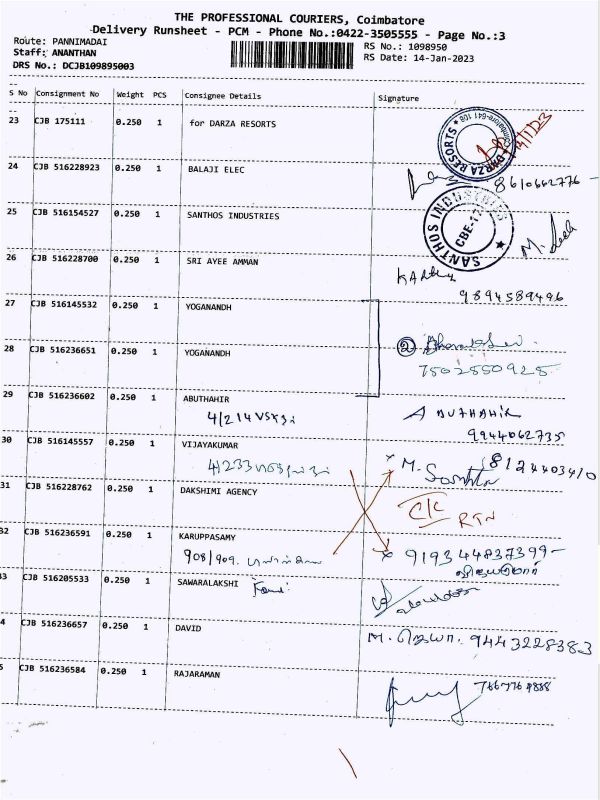 THE PROFESSIONAL COURIERS, Coimbatore
Delivery Runsheet - PCM - Phone No.:0422-3505555 - Page No.:3
Route: PANNIMADAI
RS No.: 1098950
Staff: ANANTHAN
RS Date: 14-Jan-2023
DRS No.: DCJB109895003
S No Consignment No Weight PCS Consignee Details Signature
23 CJB 175111 0.250 1 for DARZA RESORTS
DARZA RESORTS * Coimbatore-641 108 *
24 CJB 516228923 0.250 1 BALAJI ELEC
8610662776 -
25 CJB 516154527 0.250 1 SANTHOS INDUSTRIES
SANTHOS INDUSTRIES ★ CBE-17
26 CJB 516228700 0.250 1 SRI AYEE AMMAN
9894589496
27 CJB 516145532 0.250 1 YOGANANDH
28 CJB 516236651 0.250 1 YOGANANDH
②
7502550925
29 CJB 516236602 0.250 1 ABUTHAHIR
4/214
A ABUTHAHIR
9944062735
30 CJB 516145557 0.250 1 VIJAYAKUMAR
4/233
x M.
8124403410
31 CJB 516228762 0.250 1 DAKSHIMI AGENCY
RTN
32 CJB 516236591 0.250 1 KARUPPASAMY
908/909.
x 919344837399-
33 CJB 516205533 0.250 1 SAWARALAKSHI
34 CJB 516236657 0.250 1 DAVID
M. ஜெயா. 9443228383
35 CJB 516236584 0.250 1 RAJARAMAN